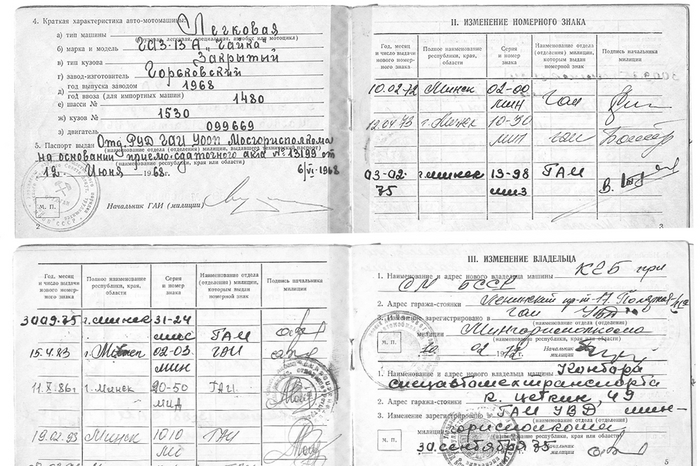 4. Краткая характеристика авто-мотомашины
а) тип машины Легковая
(легковая, грузовая, специальная, автобус или мотоцикл)
б) марка и модель ГАЗ-13 А „Чайка"
в) тип кузова Закрытый
г) завод-изготовитель Горьковский
д) год выпуска заводом 1968
е) год ввоза (для импортных машин)
е) шасси № 1480
ж) кузов № 1530
з) двигатель 099669
5. Паспорт выдан Отд. РУД ГАИ УООП Мосгорисполкома
(наименование отдела (отделения) милиции, выдавшего технический паспорт)
на основании приемо-сдаточного акта № 13199 от
(наименование республики, края или области)
12 Июня 1968 г. 6/VI-1968
М. П.
Начальник ГАИ (милиции)
2
II. ИЗМЕНЕНИЕ НОМЕРНОГО ЗНАКА
Год, месяц и число выдачи нового номерного знака
Полное наименование республики, края, области
Серия и номер
Наименование отдела (отделения) милиции, которым выдан номерной знак
Подпись начальника милиции
10.02.72 г. Минск 02-00 мин ГАИ
12.04.73 г. Минск 10-50 мин ГАИ
03-02-75 г. Минск 13-98 миз ГАИ
3
Год, месяц и число выдачи нового номерного знака
Полное наименование республики, края, области
Серия и номер
Наименование отдела (отделения) милиции, которым выдан номерной знак
Подпись начальника милиции
30.09.75 г. Минск 31-24 ГАИ
15.4.83 г. Минск 02-03 мин ГАИ
11.X.86 г. Минск 90-50 мид ГАИ
19.02.93 Минск 1010 ГАИ
III. ИЗМЕНЕНИЕ ВЛАДЕЛЬЦА
1. Наименование и адрес нового владельца машины КГБ при
СМ БССР
2. Адрес гаража-стоянки Ленинский пр-т
3. Изменение зарегистрировано в ГАИ УВД
(наименование отдела (отделения) милиции)
Мингорисполкома
(наименование республики, края или области)
М. П.
Начальник милиции
1. Наименование и адрес нового владельца машины Контора
спецавтомехтранспорта
2. Адрес гаража-стоянки К. Цеткин, 49
3. Изменение зарегистрировано в ГАИ УВД Мин-
горисполкома
30 сентября 75
М. П.
5